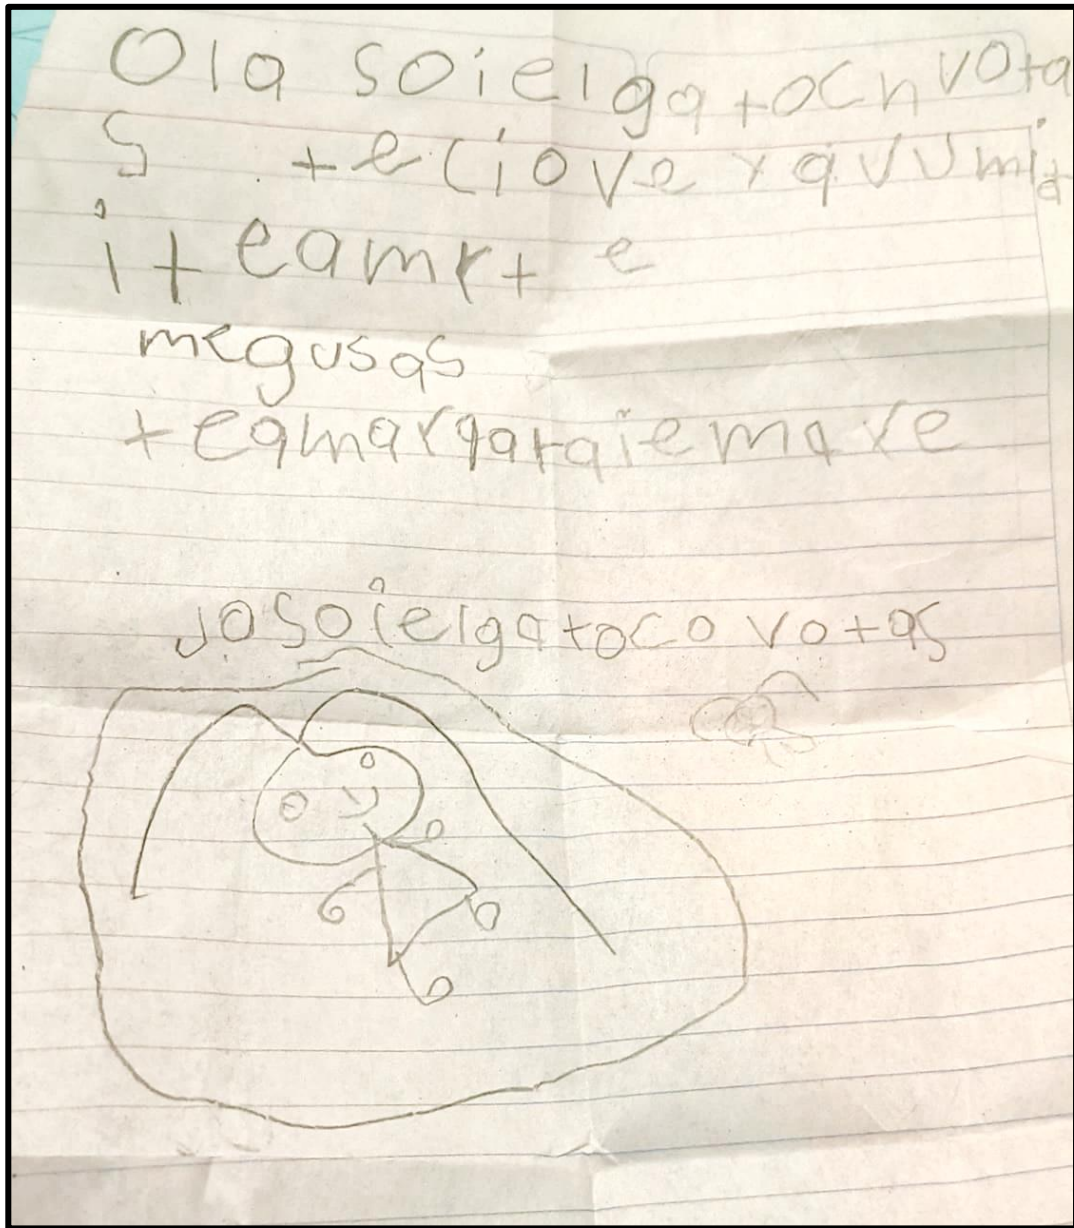 Ola soielgatocnvota
s te ciove raVUmia
iteamrte
megusas
teamargaraiemare
JoSoielgatoco votas